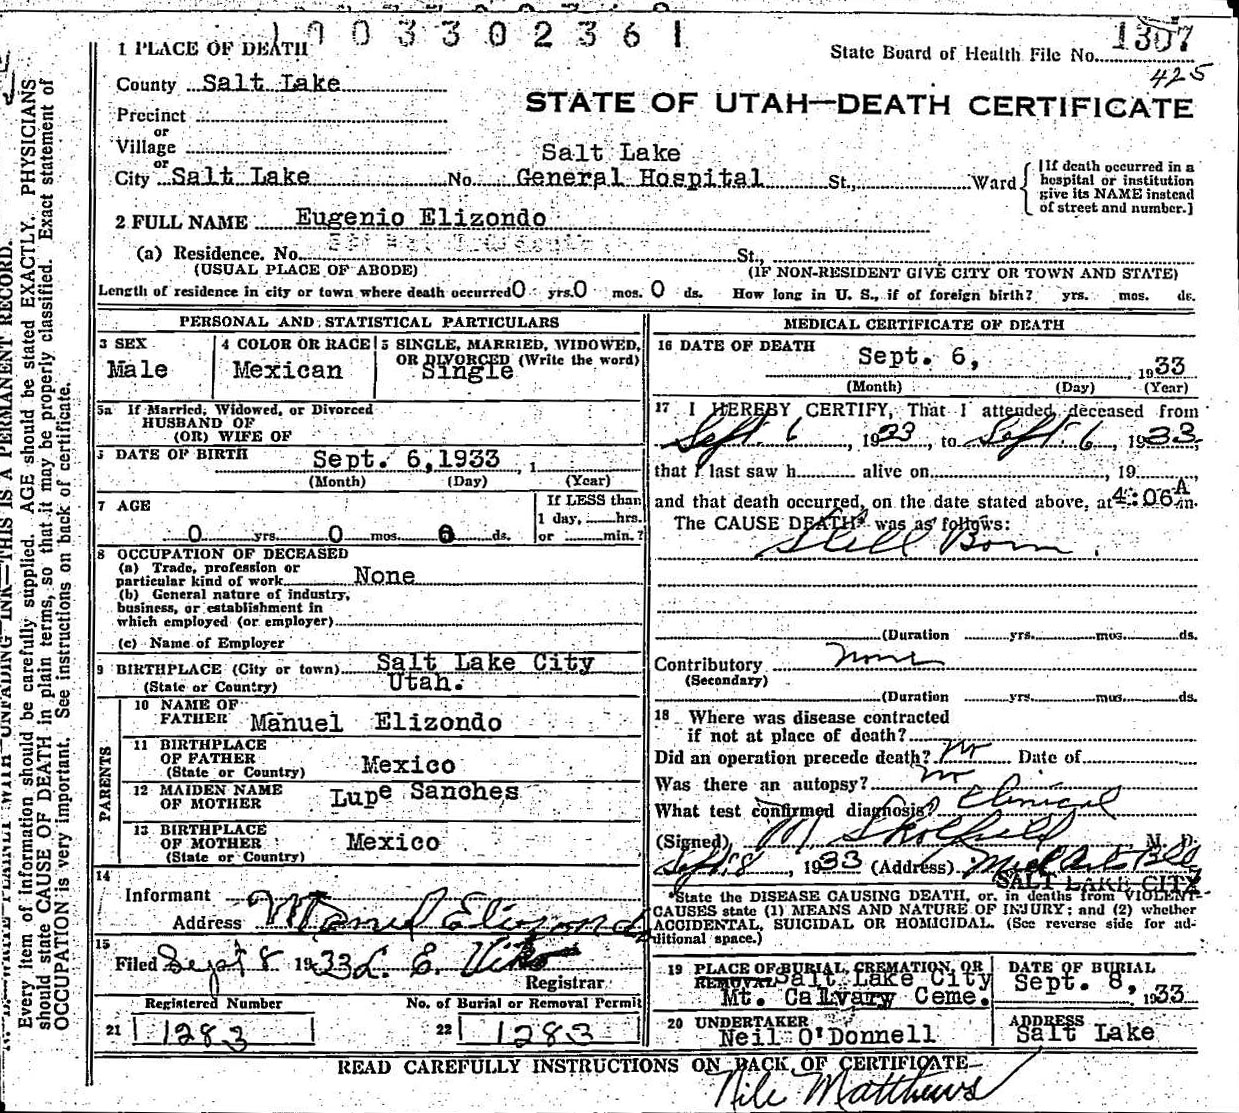 1903302361
1 PLACE OF DEATH
State Board of Health File No. 1307
425
County Salt Lake
STATE OF UTAH—DEATH CERTIFICATE
Precinct
or
Village
or
City Salt Lake No. Salt Lake General Hospital St., Ward
[If death occurred in a
hospital or institution
give its NAME instead
of street and number.]
2 FULL NAME Eugenio Elizondo
(a) Residence. No. St.,
(USUAL PLACE OF ABODE) (IF NON-RESIDENT GIVE CITY OR TOWN AND STATE)
Length of residence in city or town where death occurred 0 yrs. 0 mos. 0 ds. How long in U. S., if of foreign birth? yrs. mos. ds.
PERSONAL AND STATISTICAL PARTICULARS
3 SEX
Male
4 COLOR OR RACE
Mexican
5 SINGLE, MARRIED, WIDOWED,
OR DIVORCED (Write the word)
Single
5a If Married, Widowed, or Divorced
HUSBAND OF
(OR) WIFE OF
DATE OF BIRTH Sept. 6, 1933, 1
(Month) (Day) (Year)
7 AGE
0 yrs. 0 mos. 0 ds.
If LESS than
1 day, hrs.
or min.?
8 OCCUPATION OF DECEASED
(a) Trade, profession or
particular kind of work None
(b) General nature of industry,
business, or establishment in
which employed (or employer)
(c) Name of Employer
9 BIRTHPLACE (City or town) Salt Lake City
(State or Country) Utah.
PARENTS
10 NAME OF
FATHER Manuel Elizondo
11 BIRTHPLACE
OF FATHER
(State or Country) Mexico
12 MAIDEN NAME
OF MOTHER Lupe Sanches
13 BIRTHPLACE
OF MOTHER
(State or Country) Mexico
14
Informant
Address Manuel Elizondo
15
Filed Sept 8 1933 L. E. Viko
Registrar
Registered Number No. of Burial or Removal Permit
21 1283 22 1283
MEDICAL CERTIFICATE OF DEATH
16 DATE OF DEATH Sept. 6, 1933
(Month) (Day) (Year)
17 I HEREBY CERTIFY, That I attended deceased from
Sept. 6, 1933, to Sept. 6, 1933,
that I last saw h alive on , 19
and that death occurred, on the date stated above, at 4:06 A m.
The CAUSE DEATH* was as follows:
Still Born.
(Duration yrs. mos. ds.
Contributory none
(Secondary)
(Duration yrs. mos. ds.
18 Where was disease contracted
if not at place of death?
Did an operation precede death? no Date of
Was there an autopsy? no
What test confirmed diagnosis? Clinical
(Signed) M Skolfield M. D.
Sept. 8, 1933 (Address) Med Arts Bldg
SALT LAKE CITY
*State the DISEASE CAUSING DEATH, or, in deaths from VIOLENT
CAUSES state (1) MEANS AND NATURE OF INJURY; and (2) whether
ACCIDENTAL, SUICIDAL OR HOMICIDAL. (See reverse side for ad-
ditional space.)
19 PLACE OF BURIAL, CREMATION, OR
REMOVAL Salt Lake City
Mt. Calvary Ceme.
DATE OF BURIAL
Sept. 8, 1933
20 UNDERTAKER
Neil O'Donnell
ADDRESS
Salt Lake
READ CAREFULLY INSTRUCTIONS ON BACK OF CERTIFICATE
Nile Matthews
THIS IS A PERMANENT RECORD.
Every item of information should be carefully supplied. AGE should be stated EXACTLY. PHYSICIANS
should state CAUSE OF DEATH in plain terms, so that it may be properly classified. Exact statement of
OCCUPATION is very important. See instructions on back of certificate.